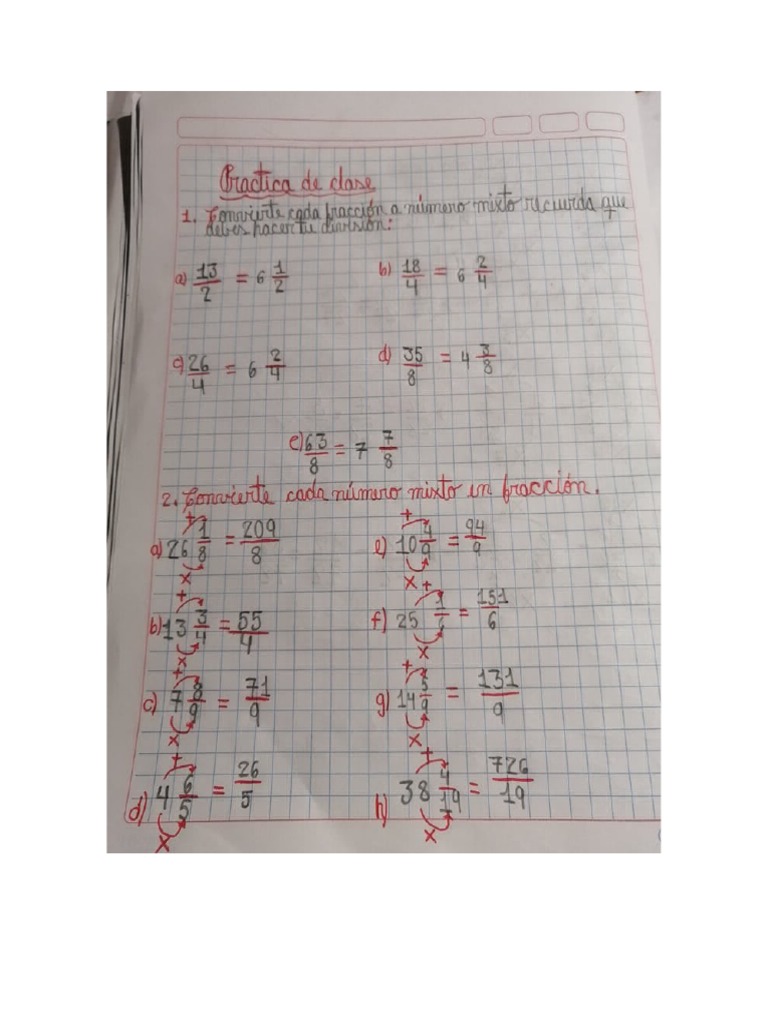 Practica de clase
1. Convierte cada fracción a número mixto recuerda que
debes hacer tu división:
a) 13/2 = 6 1/2 b) 18/4 = 6 2/4
c) 26/4 = 6 2/4 d) 35/8 = 4 3/8
e) 63/8 = 7 7/8
2. Convierte cada número mixto en fracción.
a) 26 1/8 = 209/8 e) 10 4/9 = 94/9
b) 13 3/4 = 55/4 f) 25 1/6 = 151/6
c) 7 8/9 = 71/9 g) 14 5/9 = 131/9
d) 4 6/5 = 26/5 h) 38 4/19 = 726/19